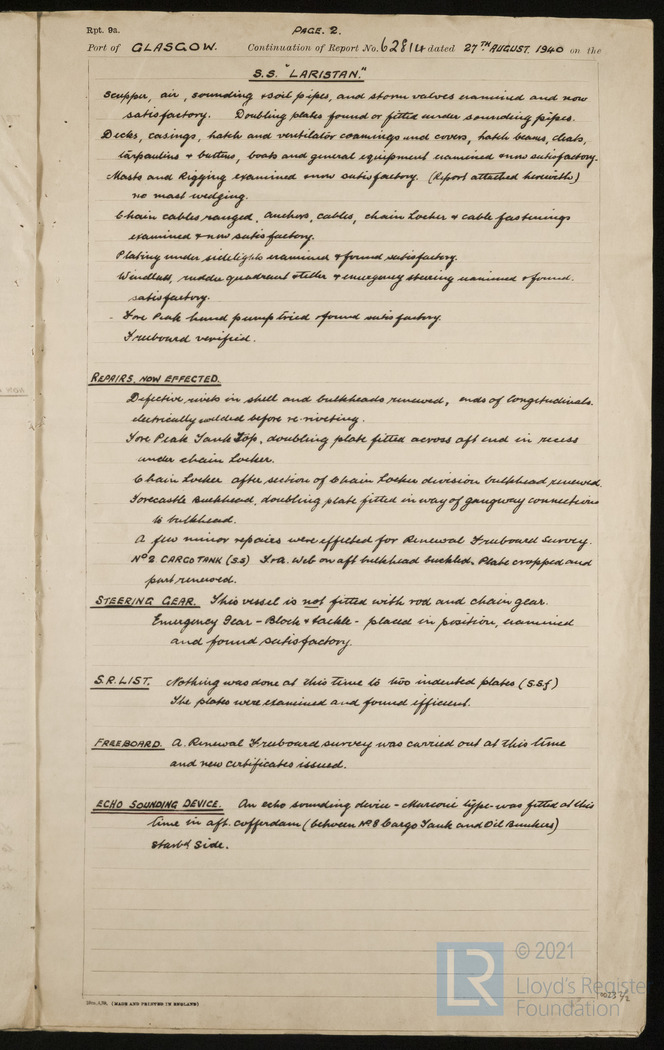 Rpt. 9a.
PAGE. 2.
Port of GLASGOW. Continuation of Report No. 62814 dated 27TH AUGUST. 1940 on the
S.S. "LARISTAN."
Scupper, air, sounding & soil pipes, and storm valves examined and now
satisfactory. Doubling plates found or fitted under sounding pipes.
Decks, casings, hatch and ventilator coamings and covers, hatch beams, cleats,
tarpaulins & battens, boats and general equipment examined & now satisfactory.
Masts and Rigging examined & now satisfactory. (Report attached herewith)
no mast wedging.
Chain cables ranged, anchors, cables, chain Locker & cable fastenings
examined & now satisfactory.
Plating under sidelights examined & found satisfactory.
Windlass, rudder quadrant & tiller & emergency steering examined & found.
satisfactory.
Fore Peak hand pump tried & found satisfactory.
Freeboard verified.
REPAIRS. NOW EFFECTED.
Defective rivets in shell and bulkheads renewed, ends of longitudinals.
electrically welded before re-riveting.
Fore Peak Tank Top, doubling plate fitted across aft end in recess
under chain Locker.
Chain Locker after section of Chain Locker division bulkhead renewed.
Forecastle Bulkhead, doubling plate fitted in way of gangway connections
to bulkhead.
A few minor repairs were effected for Renewal Freeboard Survey.
No 2 CARGO TANK (S.S) Fra. Web on aft bulkhead buckled. Plate cropped and
part renewed.
STEERING GEAR. This vessel is not fitted with rod and chain gear.
Emergency Gear - Block & tackle - placed in position, examined
and found satisfactory.
S.R. LIST. Nothing was done at this time to two indented plates (S.S.f)
The plates were examined and found efficient.
FREEBOARD. A. Renewal Freeboard survey was carried out at this time
and new certificates issued.
ECHO SOUNDING DEVICE. An echo sounding device - Marconi type - was fitted at this
time in aft. cofferdam (between No 8 Cargo Tank and Oil Bunkers)
Starbd Side.
(MADE AND PRINTED IN ENGLAND)
LR
© 2021
Lloyd's Register
Foundation